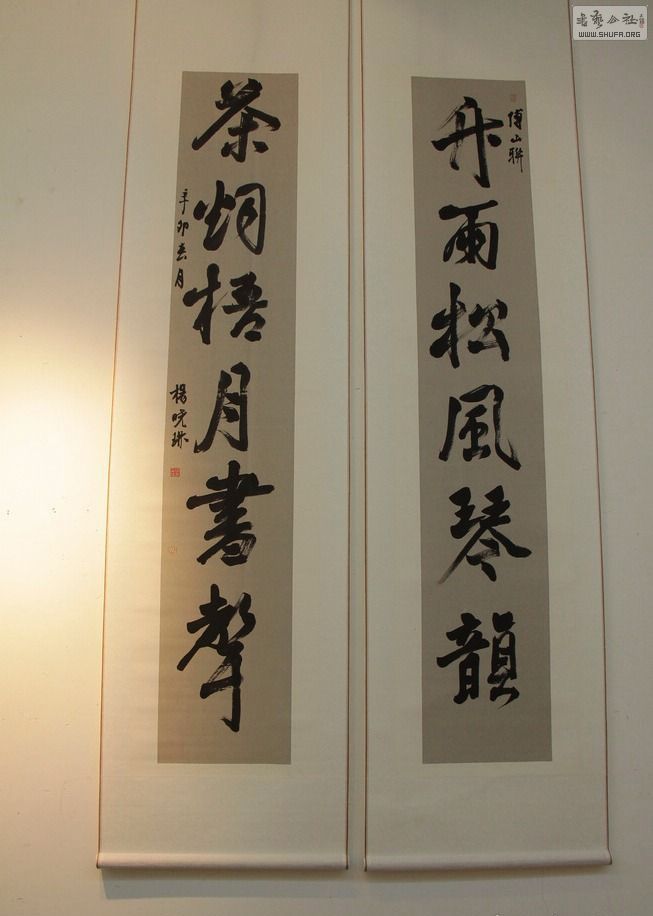 傅山聯
竹雨松風琴韻
茶烟梧月書聲
辛卯春月
楊曉琳
書藝公社
WWW.SHUFA.ORG